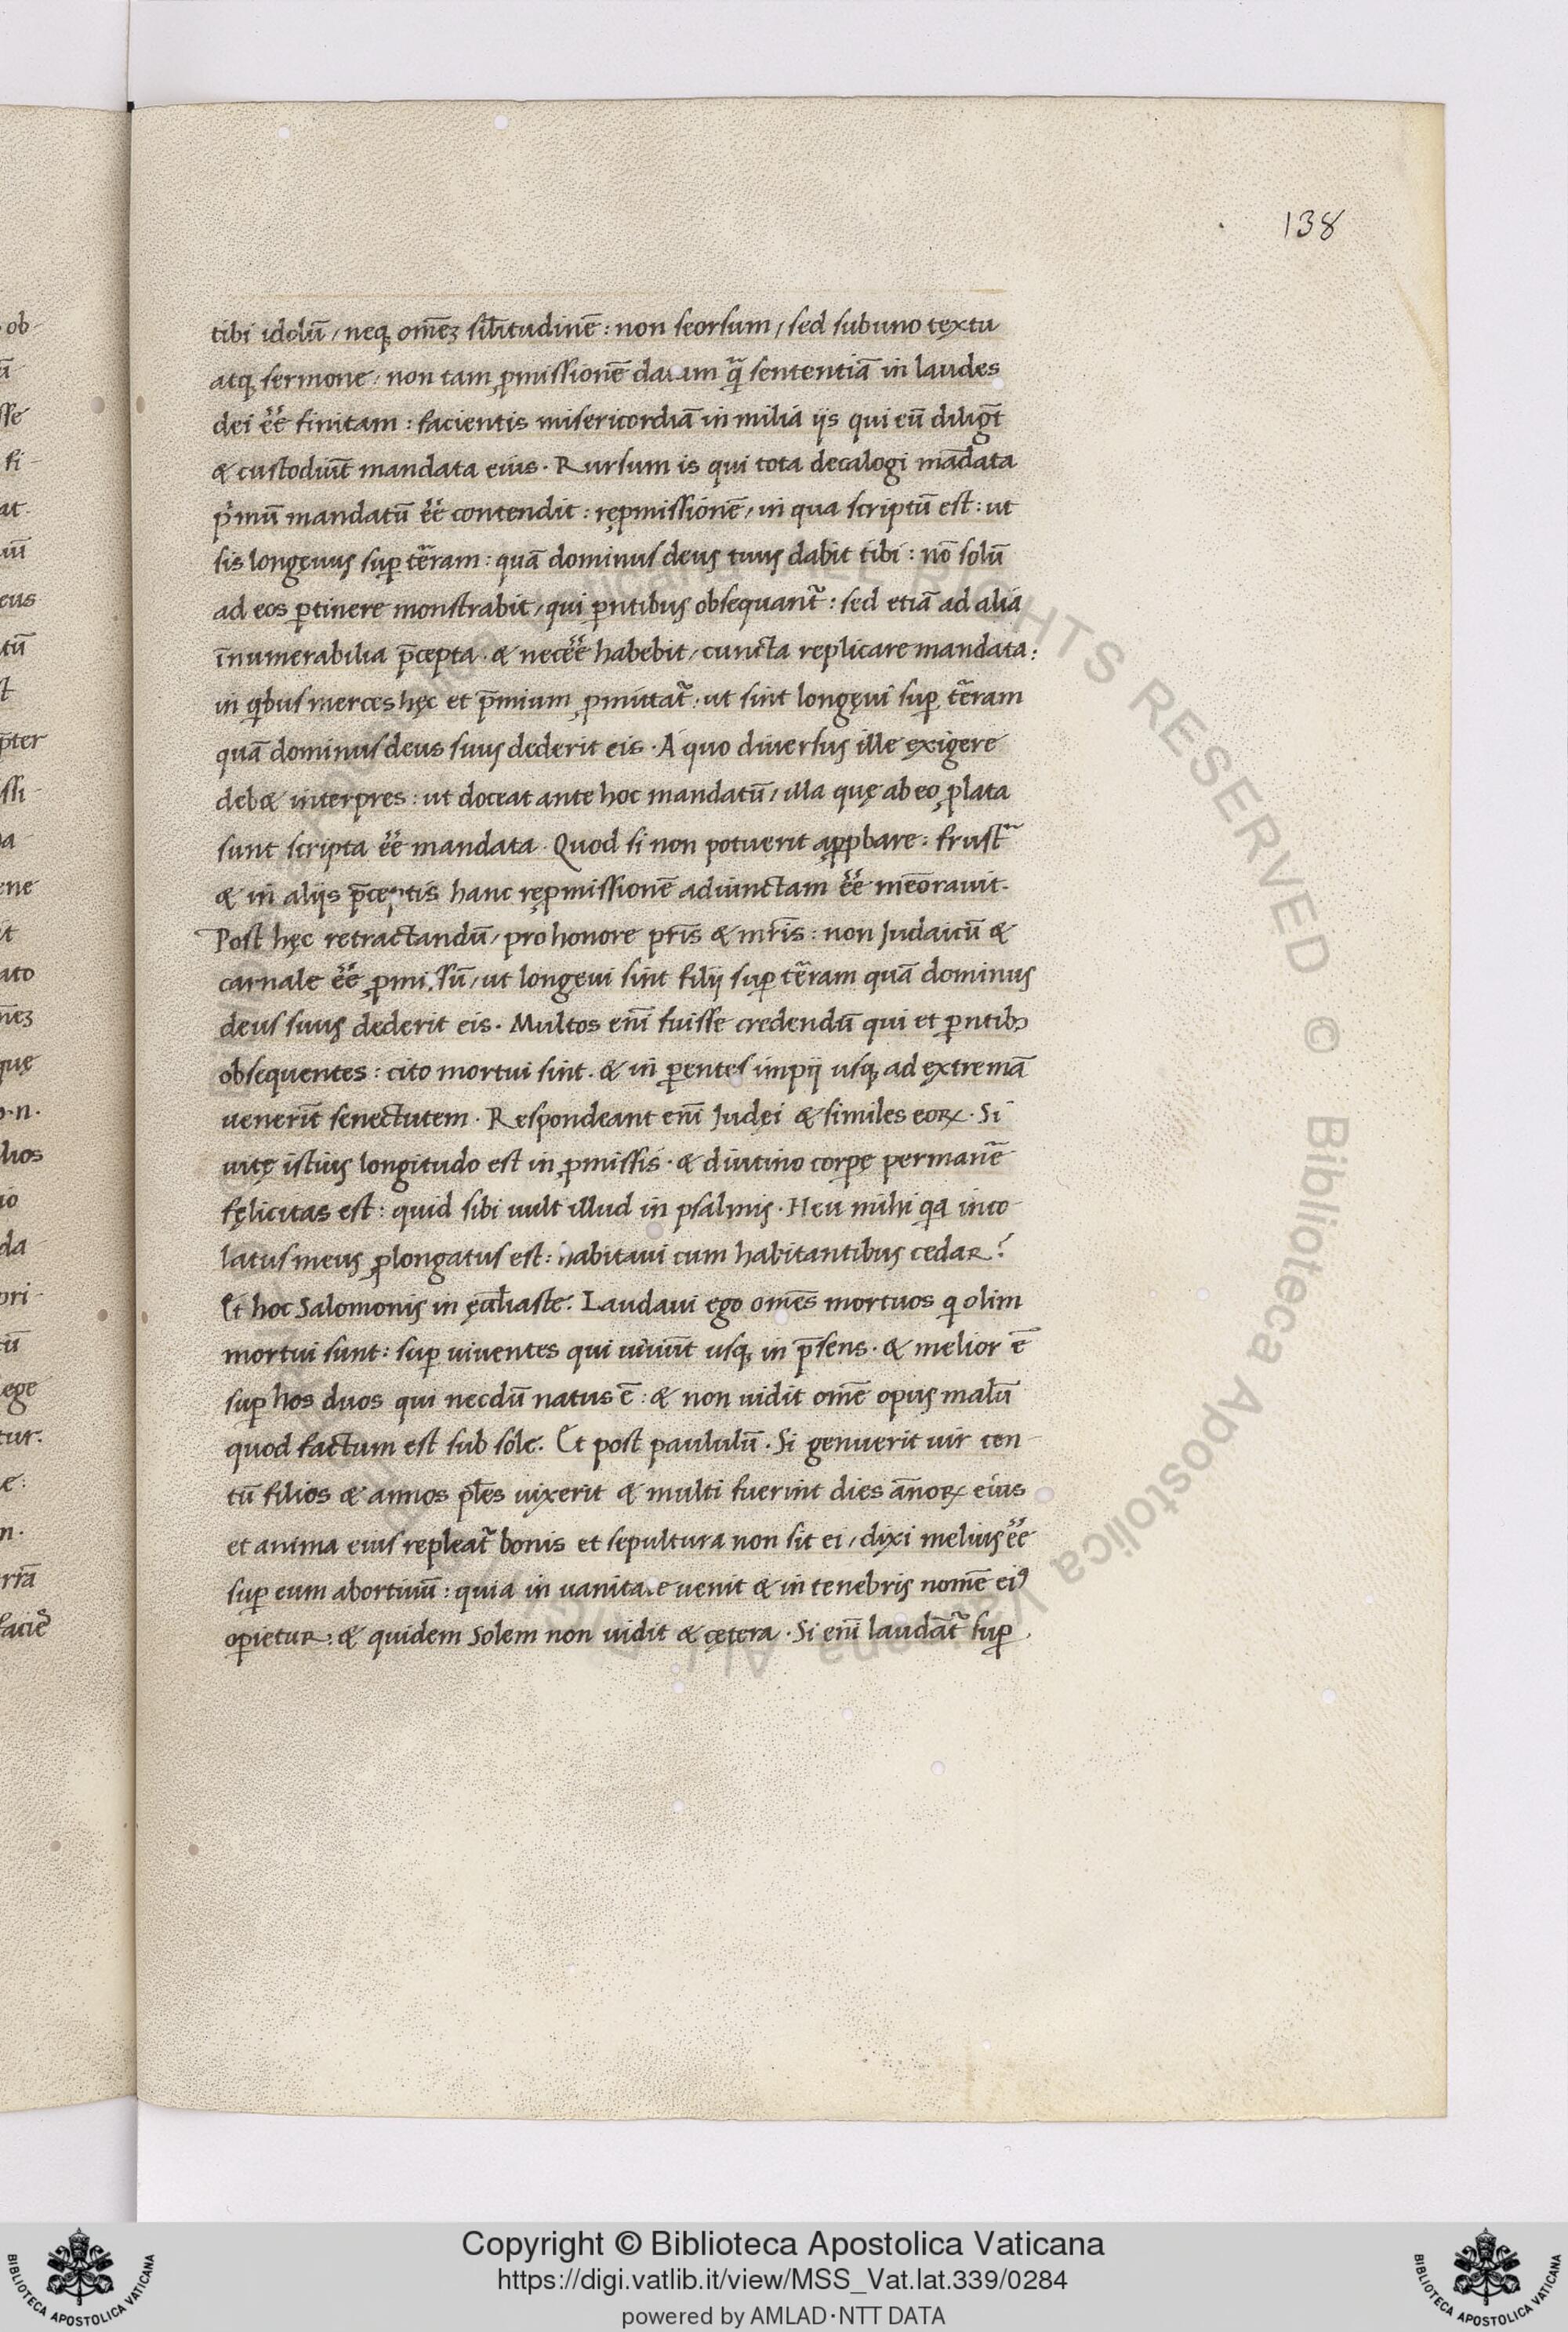 138
tibi idolū, neq; om̄eʒ sil̄itudinē: non seorsum, sed sub uno textu
atq; sermone, non tam ꝓmissionē datam q̄ sententiā in laudes
dei eē finitam: facientis misericordiā in milia ijs qui eū diligūt
& custodiūt mandata eius. Rursum is qui tota decalogi mādata
pͥmū mandatū eē contendit: rępmissionē, in qua scriptū est: ut
sis longęuus suꝑ terram: quā dominus deus tuus dabit tibi: nō solū
ad eos ꝑtinere monstrabit, qui ꝑntibus obsequant᷑: sed etiā ad alia
īnumerabilia p̄cepta. & neceē habebit, cuncta replicare mandata:
in qͥbus merces hęc et p̄mium ꝓmittat᷑, ut sint longęui suꝑ terram
quā dominus deus suus dederit eis. A quo diuersus ille exigere
deb& interpres: ut doceat ante hoc mandatū, illa quę ab eo ꝓlata
sunt scripta eē mandata. Quod si non potuerit apꝓbare: frustᵃ
& in alijs p̄ceptis hanc rępmissionē adiunctam eē memorauit.
Post hęc retractandū, pro honore pr̄is & mr̄is: non Judaicū &
carnale eē ꝓmissū, ut longęui sint filij suꝑ terram quā dominus
deus suus dederit eis. Multos eni᷑ fuisse credendū qui et ꝑntibꝫ
obsequentes: cito mortui sint. & in ꝑentes impij usq; ad extremā
uenerīt senectutem. Respondeant eni᷑ Judęi & similes eoꝝ. Si
uitę istius longitudo est in ꝓmissis. & diutino corꝑe permanē
fęlicitas est: quid sibi uult illud in psalmis. Heu mihi qͥa inco-
latus meus ꝓlongatus est: habitaui cum habitantibus cedar?
Et hoc Salomonis in ęccl̄iaste. Laudaui ego om̄es mortuos qͥ olim
mortui sunt: suꝑ uiuentes qui uiuūt usq; in p̄sens. & melior ē
suꝑ hos duos qui necdū natus ē: & non uidit om̄e opus malū
quod factum est sub sole. Et post paululū. Si genuerit uir cen-
tū filios & annos pl̄es uixerit & multi fuerint dies an̄oꝝ eius
et anima eius repleat᷑ bonis et sepultura non sit ei, dixi melius eē
suꝑ eum abortiuū: quia in uanitate uenit & in tenebris nomē eiꝰ
oꝑietur: & quidem Solem non uidit & cętera. Si eni᷑ laudāt᷑ suꝑ
Copyright © Biblioteca Apostolica Vaticana
https://digi.vatlib.it/view/MSS_Vat.lat.339/0284
powered by AMLAD·NTT DATA